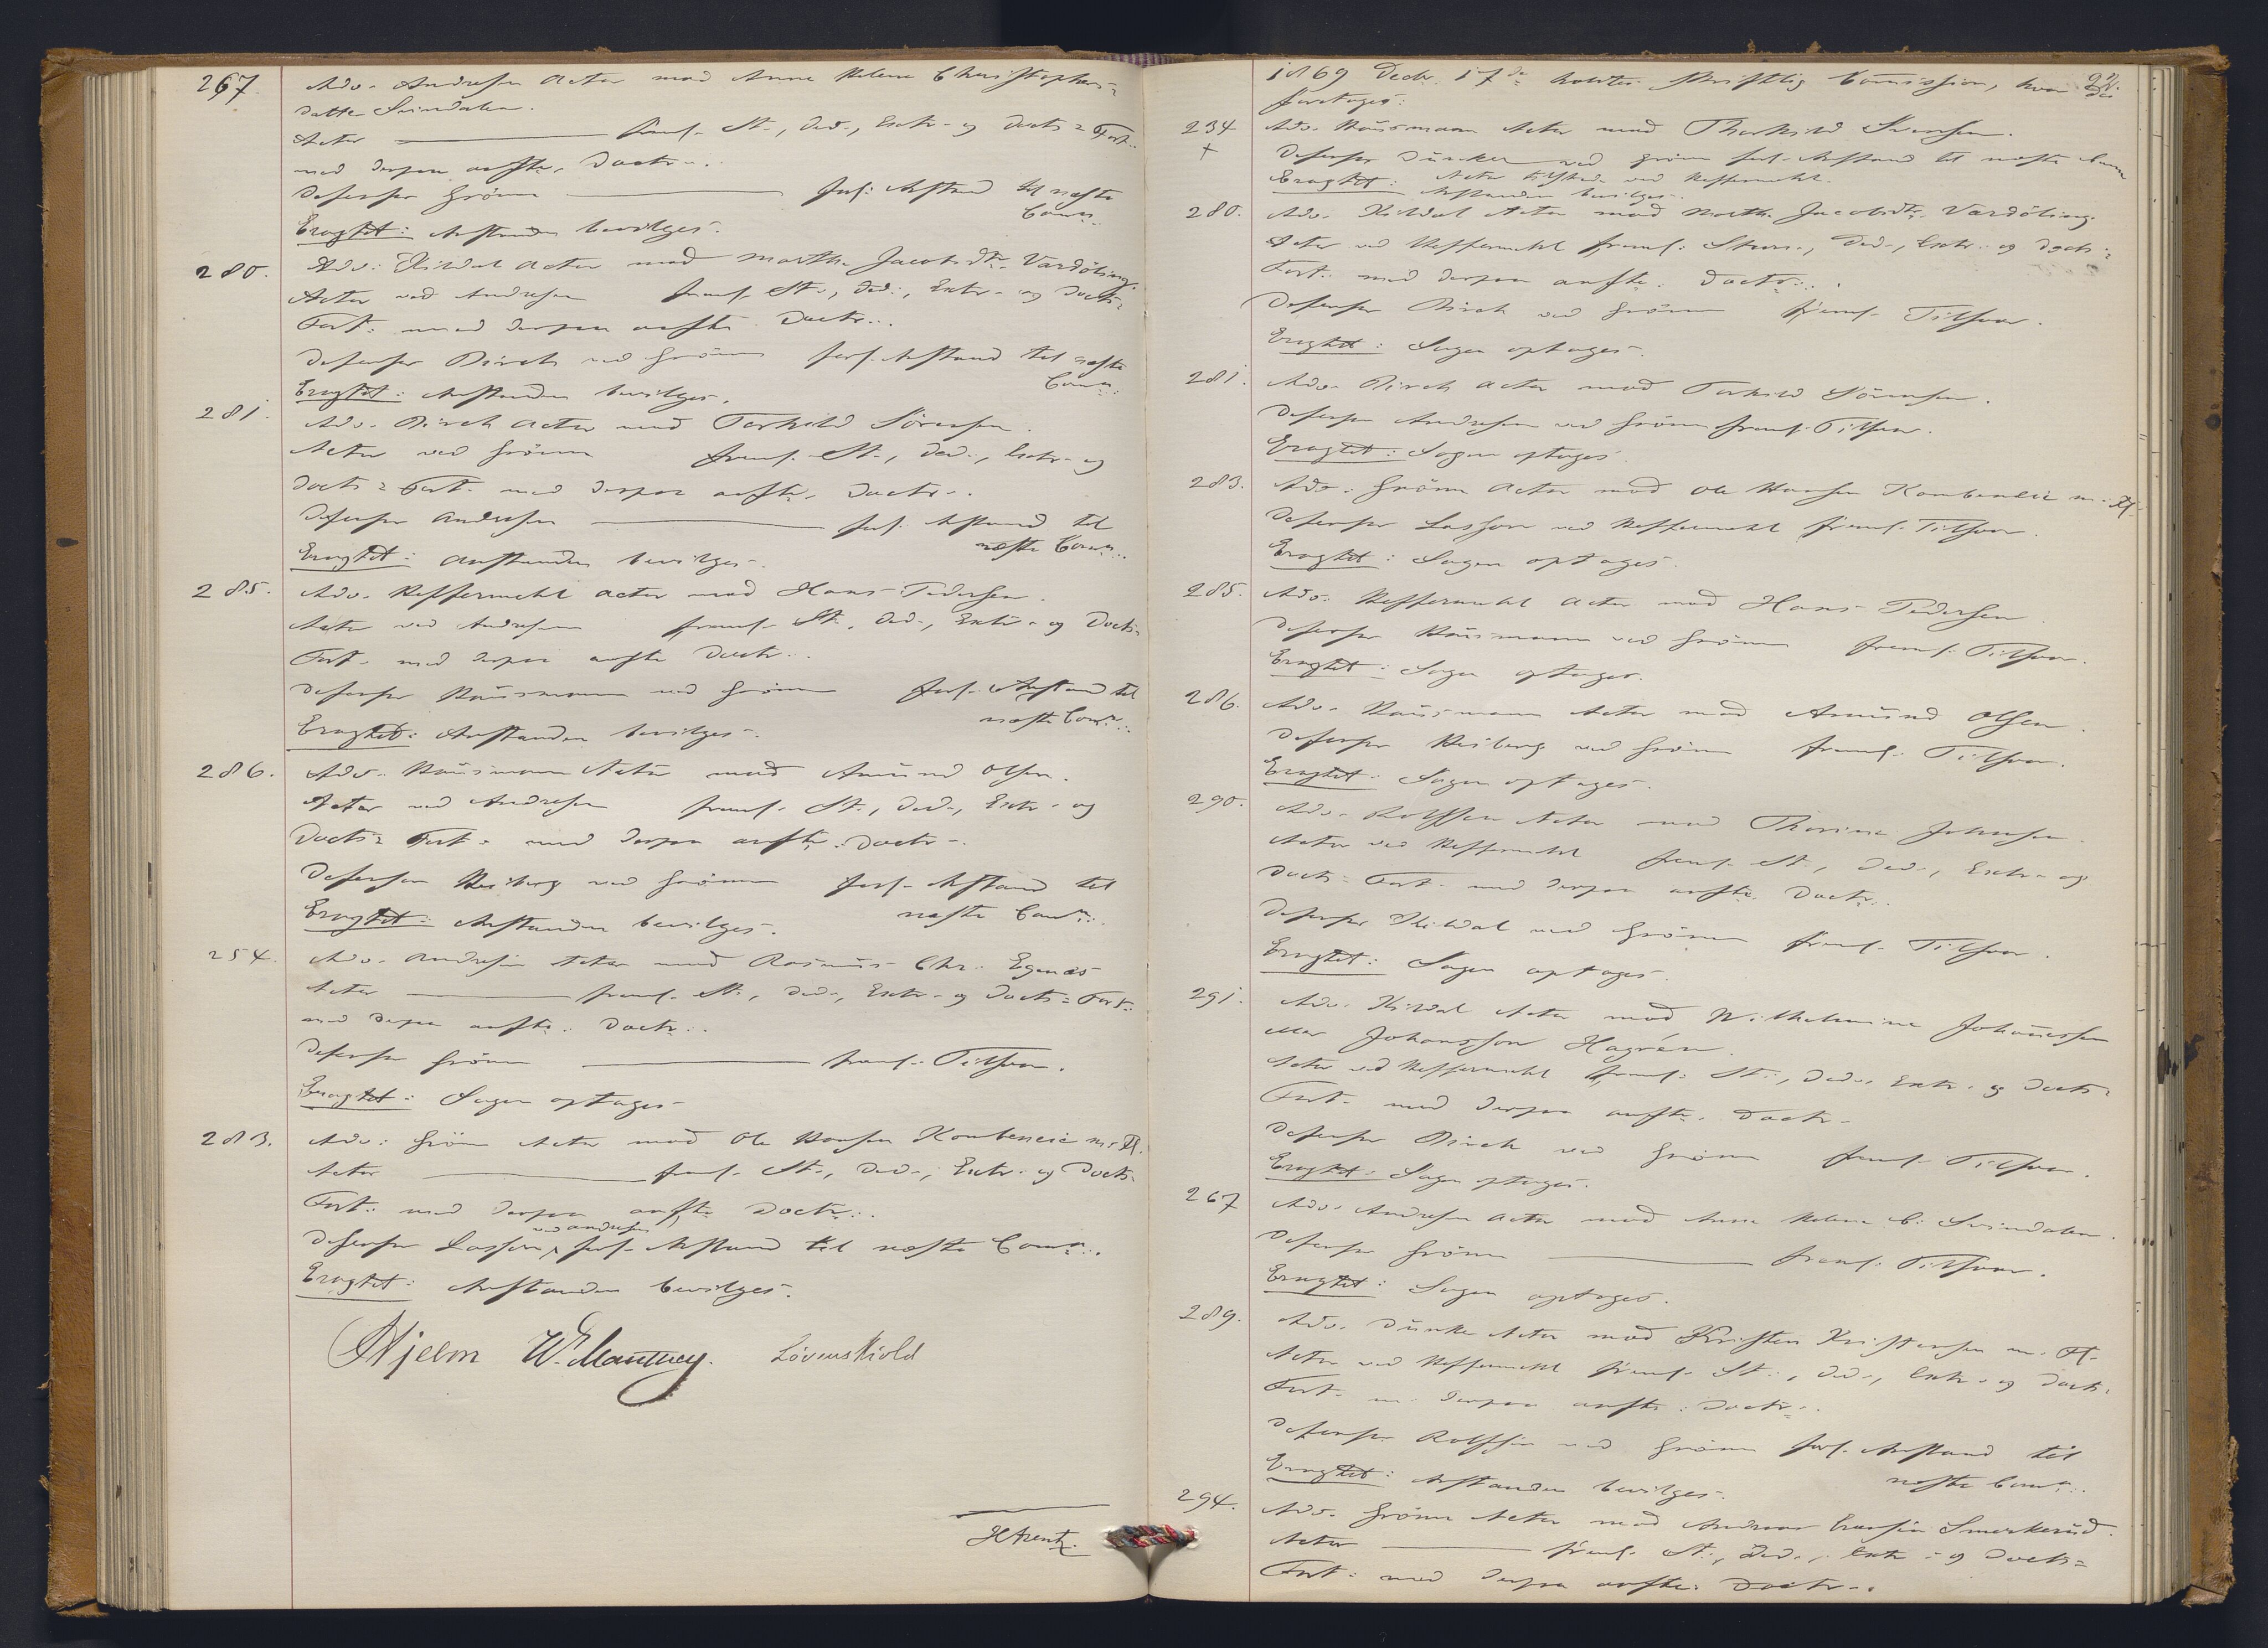 267. Adv. Andresen Actor mod Anne Helene Christophers=
datter Svindalen.
Actor ——— freml. St., Ded., Extr.- og Docts= Forl.
med derpaa anførte Doctr..
Defensor Grönn ——— forl. Anstand til næste
Comn.
Eragtet: Anstanden bevilges.
280. Adv. Kildal Actor mod Marthe Jacobsdtr. Vardöling.
Actor ved Andresen freml. St., Ded., Extr.- og Docts=
Forl. med derpaa anførte Doctr..
Defensor Birch ved Grönn forl. Anstand til næste
Comn.
Eragtet: Anstanden bevilges.
281. Adv. Birch Actor mod Torkild Sörensen.
Actor ved Grönn freml. St., Ded., Extr.- og
Docts= Forl. med derpaa anførte Doctr..
Defensor Andresen ——— forl. Anstand til
næste Comn.
Eragtet: Anstanden bevilges.
285. Adv. Heffermehl Actor mod Hans Pedersen.
Actor ved Andresen freml. St., Ded., Extr.- og Docts=
Forl. med derpaa anførte Doctr..
Defensor Hausmann ved Grönn forl. Anstand til
næste Comn.
Eragtet: Anstanden bevilges.
286. Adv. Hausmann Actor mod Amund Olsen.
Actor ved Andresen freml. St., Ded., Extr.- og
Docts= Forl. med derpaa anførte Doctr.
Defensor Heiberg ved Grönn forl. Anstand til
næste Comn.
Eragtet: Anstanden bevilges.
254. Adv. Andresen Actor mod Rasmus Chr. Egenæs
Actor ——— freml. St., Ded., Extr.- og Docts= Forl.
med derpaa anførte Doctr..
Defensor Grönn ——— freml. Tilsvar.
Eragtet: Sagen optages
283. Adv. Grönn Actor mod Ole Hansen Kombeneie m. Fl.
Actor ——— freml. St., Ded., Extr.- og Docts=
Forl. med derpaa anførte Doctr..
ved Andresen
Defensor Lasson forl. Anstand til næste Comn.
Eragtet: Anstanden bevilges.
Hjelm W. E. Manthey. Lövenskiold
H Arentz.
1869 Decbr. 17de holdtes skriftlig Comission, hvor
foretoges:
234 Adv. Hausmann Actor mod Thorkild Svensen.
+ Defensor Düncker ved Grönn forl. Anstand til næste Comn
Actor tilsted. ved Heffermehl.
Eragtet: Anstanden bevilges.
280. Adv. Kildal Actor mod Marthe Jacobsdtr. Vardöling.
Actor ved Heffermehl freml. Stevn., Ded., Extr.- og Docts=
Forl. med derpaa anførte Doctr..
Defensor Birch ved Grönn freml. Tilsvar.
Eragtet: Sagen optages.
281. Adv. Birch Actor mod Torkild Sörensen.
Defensor Andresen ved Grönn freml. Tilsvar.
Eragtet: Sagen optages.
283. Adv. Grönn Actor mod Ole Hansen Kombeneie m. Fl.
Defensor Lasson ved Heffermehl freml. Tilsvar.
Eragtet: Sagen optages.
285. Adv. Heffermehl Actor mod Hans Pedersen
Defensor Hausmann ved Grönn freml. Tilsvar.
Eragtet: Sagen optages.
286. Adv. Hausmann Actor mod Amund Olsen.
Defensor Heiberg ved Grönn freml. Tilsvar.
Eragtet: Sagen optages.
290. Adv. Rolfsen Actor mod Thorine Johnsen
Actor ved Heffermehl freml. St., Ded., Extr.- og
Docts= Forl. med derpaa anførte Doctr..
Defensor Kildal ved Grönn freml. Tilsvar.
Eragtet: Sagen optages.
291. Adv. Kildal Actor mod Wilhelmine Johannessen
eller Johansson Hagrén.
Actor ved Heffermehl freml. St., Ded., Extr.- og Docts=
Forl. med derpaa anførte Doctr.
Defensor Birch ved Grönn freml. Tilsvar.
Eragtet: Sagen optages.
267 Adv. Andresen Actor mod Anne Helene C. Svindalen.
Defensor Grönn ——— freml. Tilsvar.
Eragtet: Sagen optages.
289. Adv. Düncker Actor mod Kristen Kristensen m. Fl.
Actor ved Heffermehl freml. St., Ded., Extr.- og Docts=
Forl. m. derpaa anførte Doctr..
Defensor Rolfsen ved Grönn forl. Anstand til
næste Comn.
Eragtet: Anstanden bevilges.
294. Adv. Grönn Actor mod Andreas Smerkerud.
Actor ——— freml. St., Ded., Extr.- og Docts=
Forl. med derpaa anførte Doctr..